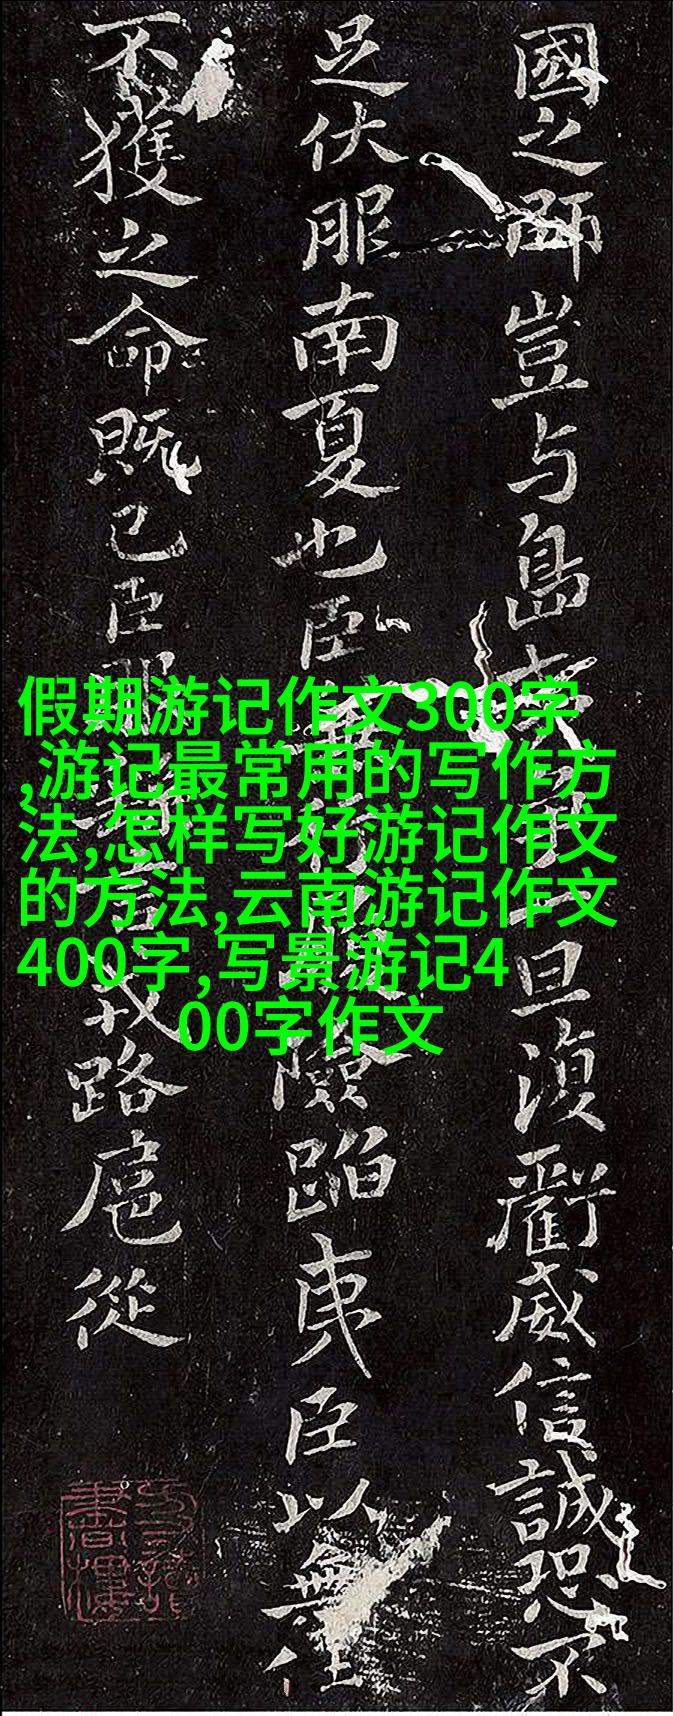 國之師豈与島夷旦湏威信誠恐不
足伏服南夏也臣行險蹈夷臣以無任
不獲之命既已臣戎路扈從
假期游记作文300字
,游记最常用的写作方
法,怎样写好游记作文
的方法,云南游记作文
400字,写景游记4
00字作文